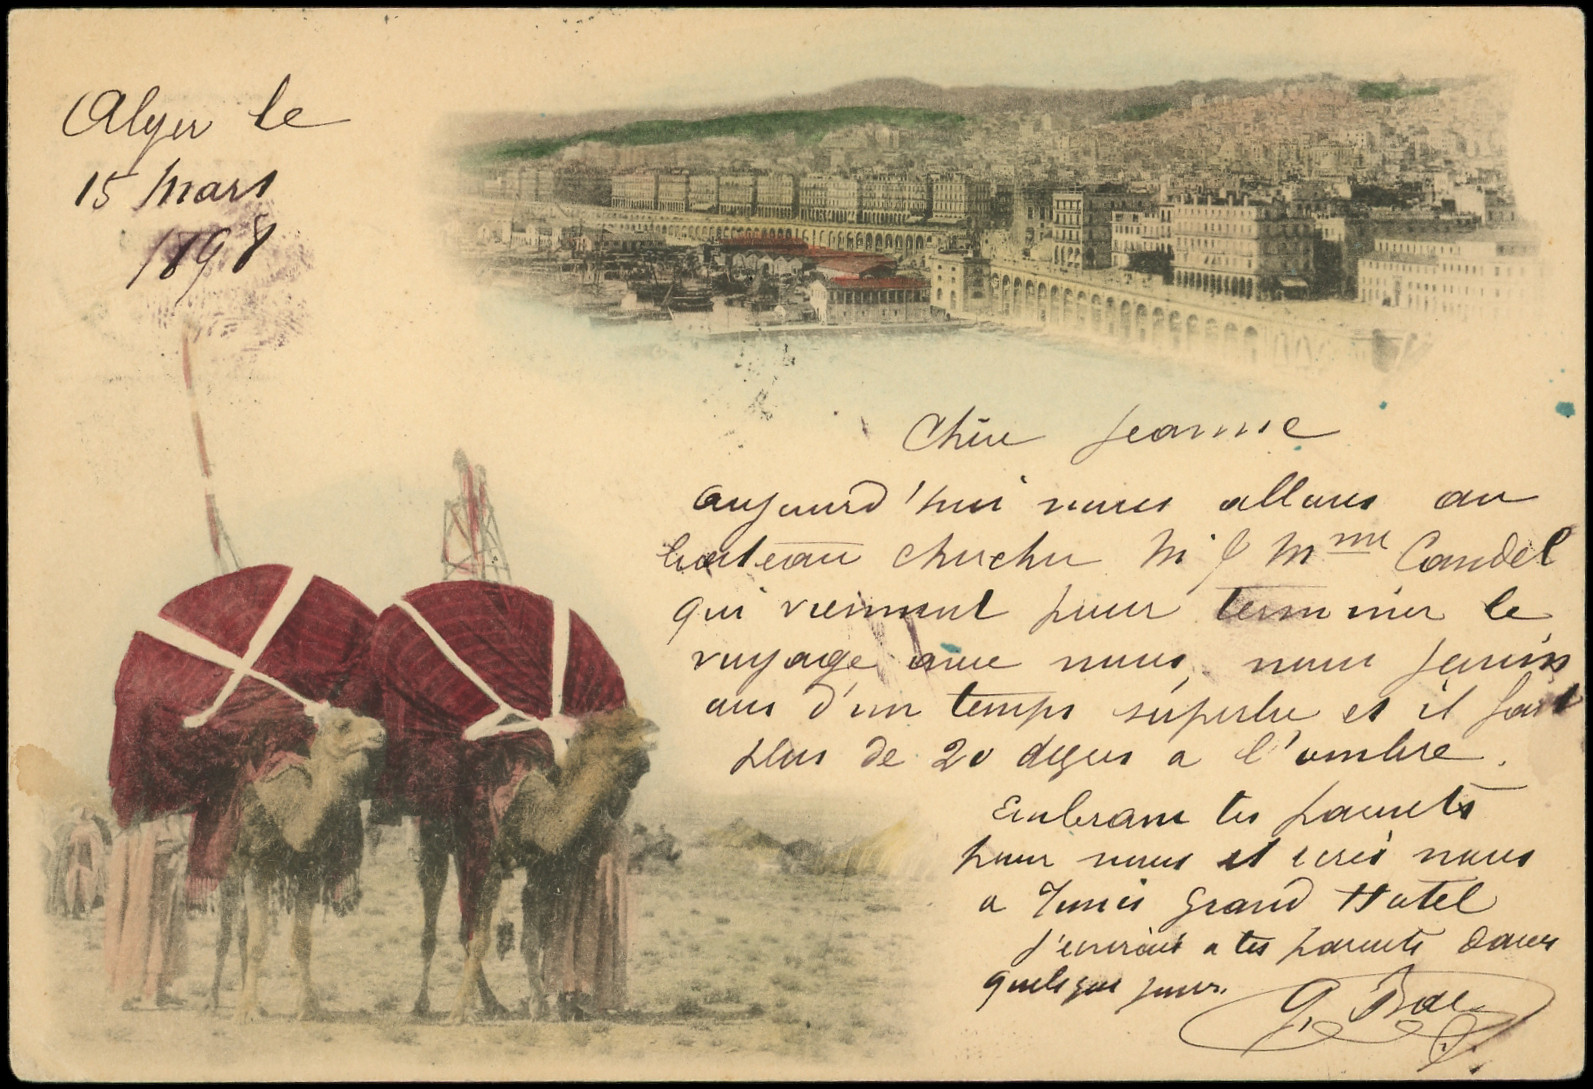 Alger le
15 Mars
1898
Chère Jeanne
Aujourd'hui nous allons au
bateau chercher M & Mme Candel
qui viennent pour terminer le
voyage avec nous, nous jouis
ons d'un temps superbe et il fait
plus de 20 degrés a l'ombre.
Embrasse tes parents
pour nous et ecris nous
a Tunis Grand Hotel
j'ecrirai a tes parents dans
quelques jours.
G.